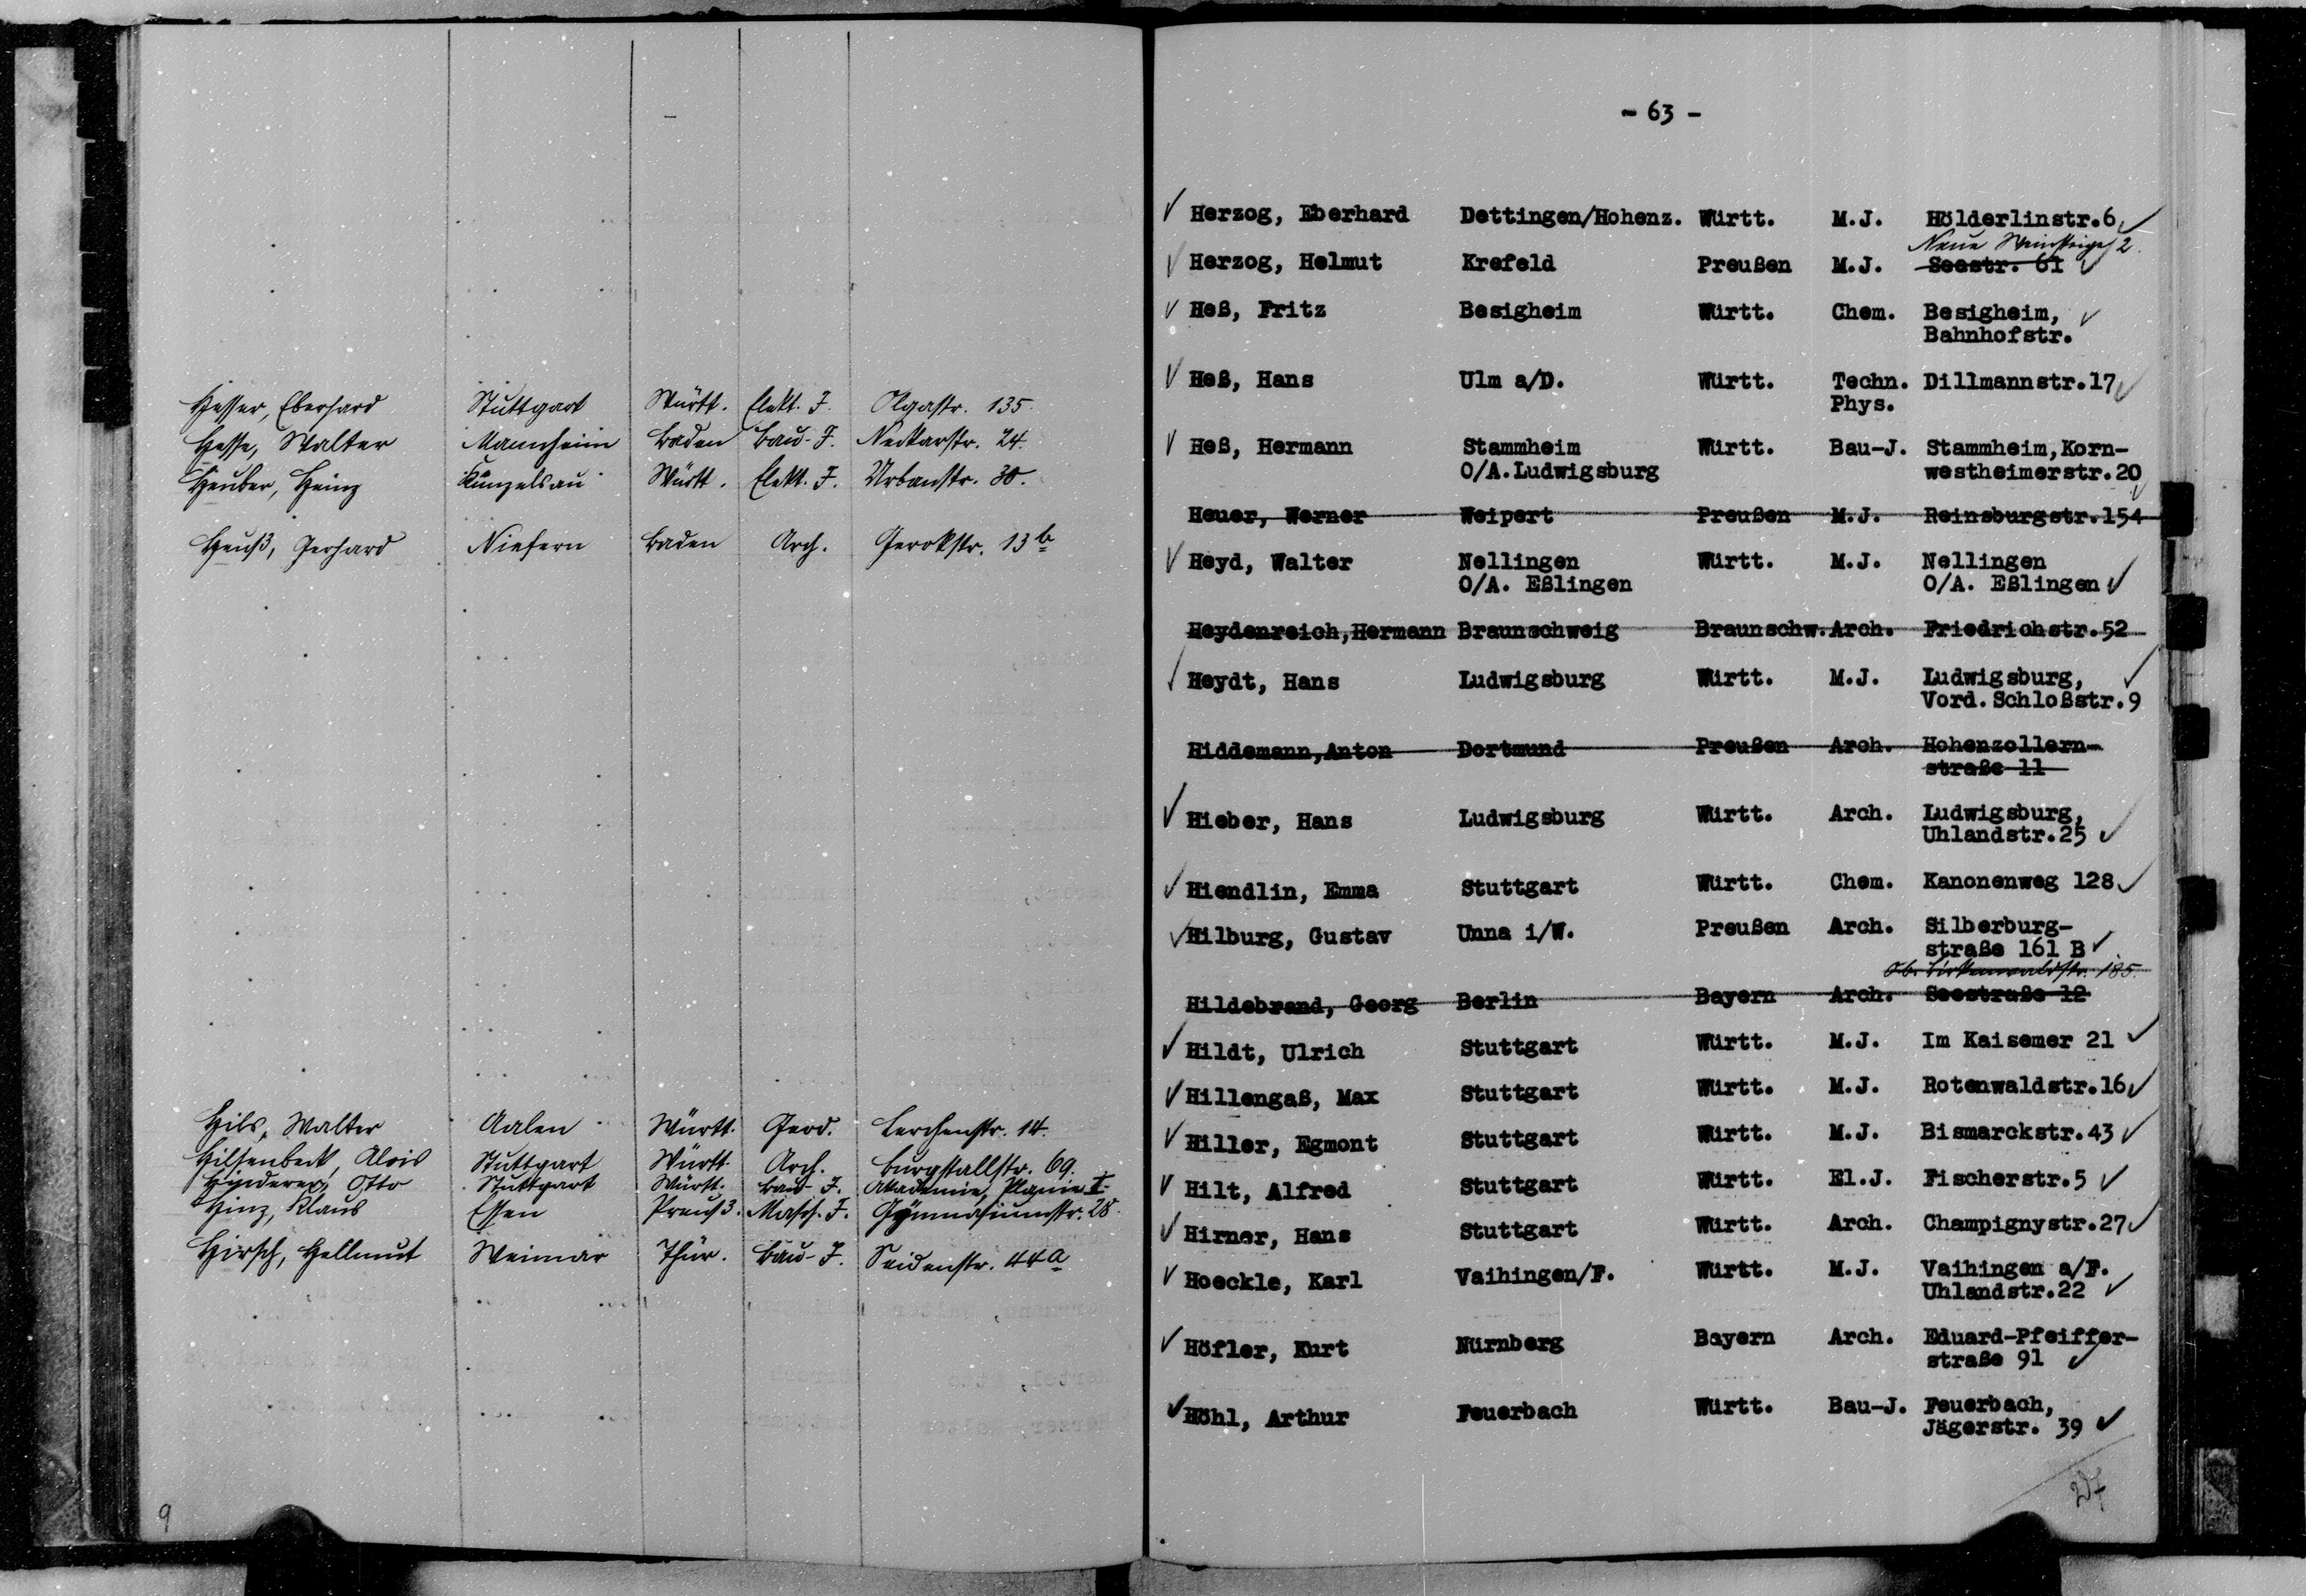 Hesser, Eberhard Stuttgart Württ. Elekt. J. Olgastr. 135.
Hesse, Walter Mannheim Baden Bau-J. Neckarstr. 24.
Heuber, Heinz Künzelsau Württ. Elekt. J. Urbanstr. 30.
Heuß, Gerhard Niefern Baden Arch. Gerokstr. 13b
Hils, Walter Aalen Württ. Geod. Lerchenstr. 14.
Hilsenbeck, Alois Stuttgart Württ. Arch. Burgstallstr. 69.
Hinderer, Otto Stuttgart Württ. Bau-J. Akademie, Planie I.
Hinz, Klaus Essen Preuß. Masch. J. Gymnasiumstr. 28.
Hirsch, Hellmut Weimar Thür. Bau-J. Seidenstr. 44a
9
- 63 -
Herzog, Eberhard Dettingen/Hohenz. Württ. M.J. Hölderlinstr.6
Neue Weinsteige 2.
Herzog, Helmut Krefeld Preußen M.J. Seestr. 61
Heß, Fritz Besigheim Württ. Chem. Besigheim,
Bahnhofstr.
Heß, Hans Ulm a/D. Württ. Techn. Dillmannstr.17
Phys.
Heß, Hermann Stammheim Württ. Bau-J. Stammheim,Korn-
O/A.Ludwigsburg westheimerstr.20
Heuer, Werner Weipert Preußen M.J. Reinsburgstr.154
Heyd, Walter Nellingen Württ. M.J. Nellingen
O/A. Eßlingen O/A. Eßlingen
Heydenreich,Hermann Braunschweig Braunschw. Arch. Friedrichstr.52
Heydt, Hans Ludwigsburg Württ. M.J. Ludwigsburg,
Vord.Schloßstr.9
Hiddemann,Anton Dortmund Preußen Arch. Hohenzollern-
straße 11
Hieber, Hans Ludwigsburg Württ. Arch. Ludwigsburg,
Uhlandstr.25
Hiendlin, Emma Stuttgart Württ. Chem. Kanonenweg 128
Hilburg, Gustav Unna i/W. Preußen Arch. Silberburg-
straße 161 B
Ob. Birkenwaldstr. 185.
Hildebrand, Georg Berlin Bayern Arch. Seestraße 12
Hildt, Ulrich Stuttgart Württ. M.J. Im Kaisemer 21
Hillengaß, Max Stuttgart Württ. M.J. Rotenwaldstr.16
Hiller, Egmont Stuttgart Württ. M.J. Bismarckstr.43
Hilt, Alfred Stuttgart Württ. El.J. Fischerstr.5
Hirner, Hans Stuttgart Württ. Arch. Champignystr.27
Hoeckle, Karl Vaihingen/F. Württ. M.J. Vaihingen a/F.
Uhlandstr.22
Höfler, Kurt Nürnberg Bayern Arch. Eduard-Pfeiffer-
straße 91
Höhl, Arthur Feuerbach Württ. Bau-J. Feuerbach,
Jägerstr. 39